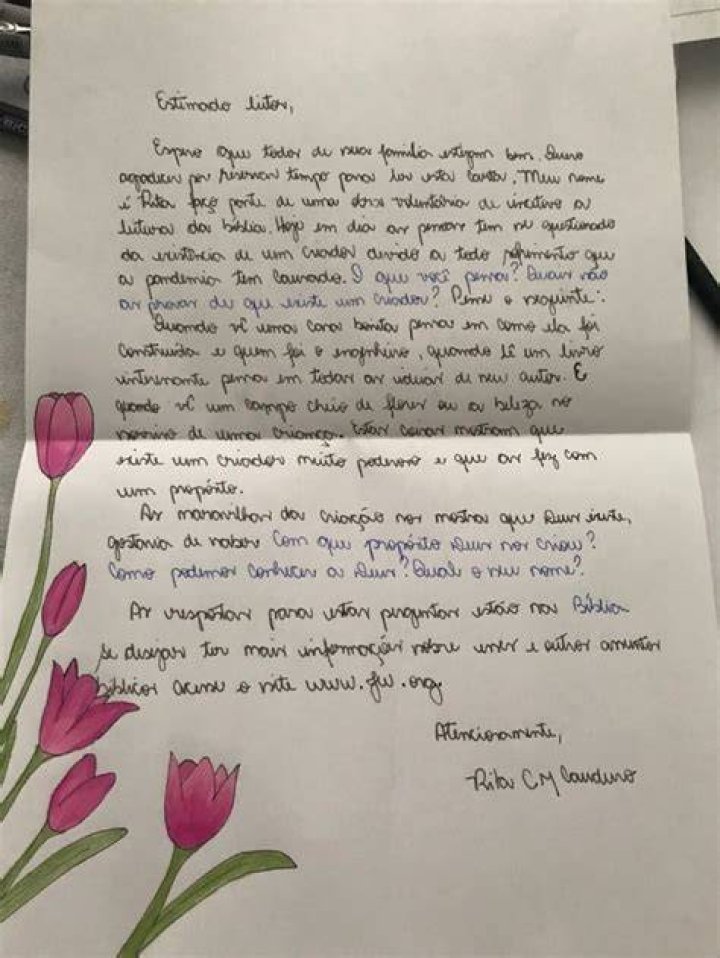 Estimado leitor,
Espero que todos de sua família estejam bem. Quero
agradecer por reservar tempo para ler esta carta. Meu nome
é Rita faço parte de uma obra voluntária de incetivo a
leitura da bíblia. Hoje em dia as pessoas tem se questionado
da existência de um criador devido a todo sofrimento que
a pandemia tem causado. O que você pensa? Quais são
as provas de que existe um criador? Pense o seguinte:
Quando vê uma casa bonita pensa em como ela foi
construída e quem foi o engenheiro, quando lê um livro
interessante pensa em todas as ideias de seu autor. E
quando vê um campo cheio de flores ou a beleza no
sorriso de uma criança. Estas coisas mostram que
existe um criador muito poderoso e que as fez com
um propósito.
As maravilhas da criação nos mostra que Deus existe,
gostaria de saber Com que propósito Deus nos criou?
Como podemos conhecer a Deus? Qual o seu nome?
As respostas para estas perguntas estão na Bíblia
se desejar ter mais informações sobre esses e outros assuntos
bíblicos acesse o site www.jw.org.
Atenciosamente,
Rita CM